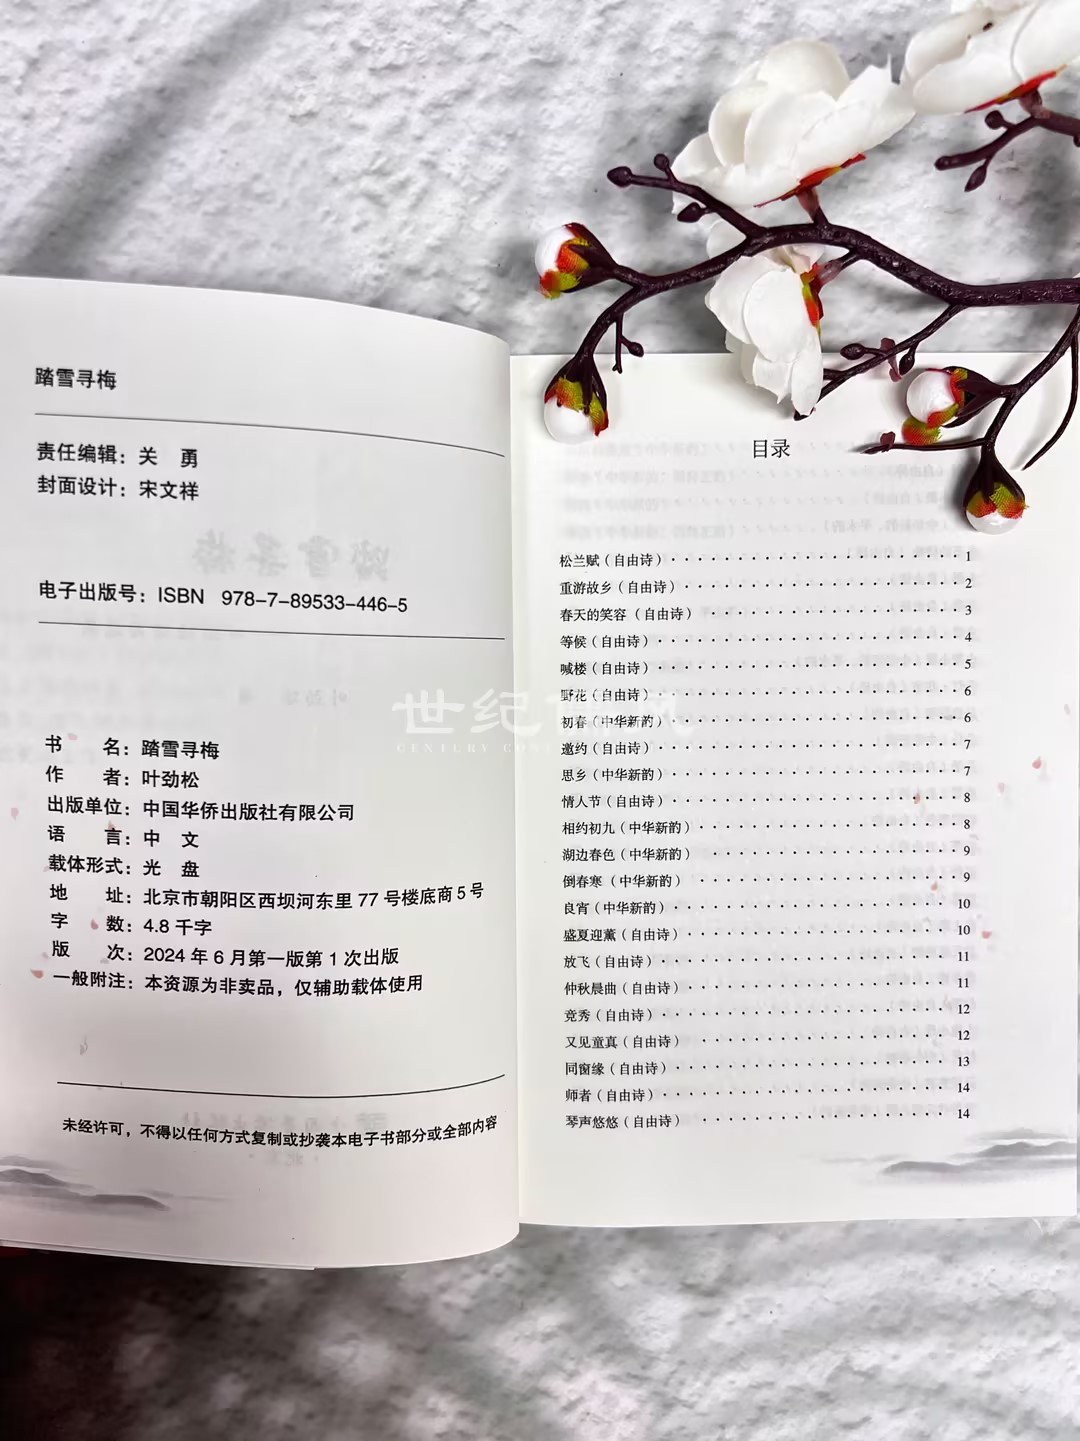 踏雪寻梅
责任编辑：关 勇
封面设计：宋文祥
电子出版号：ISBN 978-7-89533-446-5
书 名：踏雪寻梅
作 者：叶劲松
出版单位：中国华侨出版社有限公司
语 言：中 文
载体形式：光 盘
地 址：北京市朝阳区西坝河东里 77 号楼底商 5 号
字 数：4.8 千字
版 次：2024 年 6 月第一版第 1 次出版
一般附注：本资源为非卖品，仅辅助载体使用
未经许可，不得以任何方式复制或抄袭本电子书部分或全部内容
目录
松兰赋（自由诗）1
重游故乡（自由诗）2
春天的笑容（自由诗）3
等候（自由诗）4
喊楼（自由诗）5
野花（自由诗）6
初春（中华新韵）6
邀约（自由诗）7
思乡（中华新韵）7
情人节（自由诗）8
相约初九（中华新韵）8
湖边春色（中华新韵）9
倒春寒（中华新韵）9
良宵（中华新韵）10
盛夏迎薰（自由诗）10
放飞（自由诗）11
仲秋晨曲（自由诗）11
竞秀（自由诗）12
又见童真（自由诗）12
同窗缘（自由诗）13
师者（自由诗）14
琴声悠悠（自由诗）14
世纪儒风
CENTURY